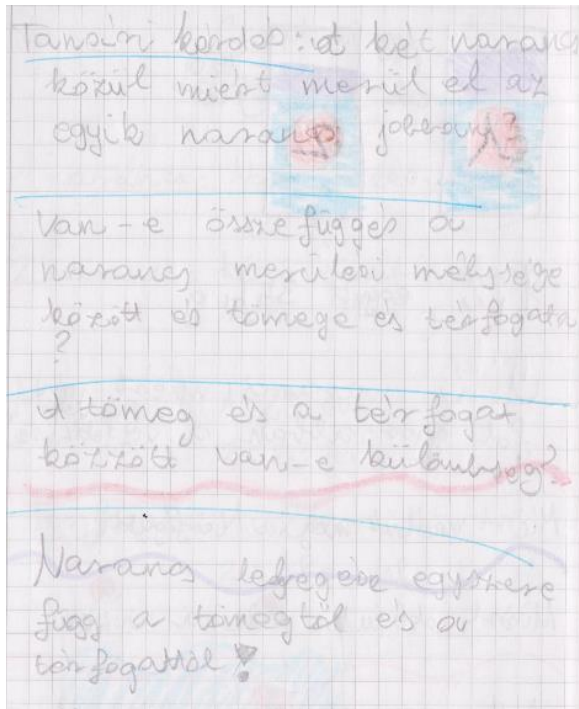 Tanári kérdés: A két narancs
közül miért merül el az
egyik narancs jobban?
Van-e összefüggés a
narancs merülési mélysége
között és tömege és térfogata
?
A tömeg és a térfogat
között van-e külömbség?
Narancs egyszere
függ a tömegtől és a
térfogattól!